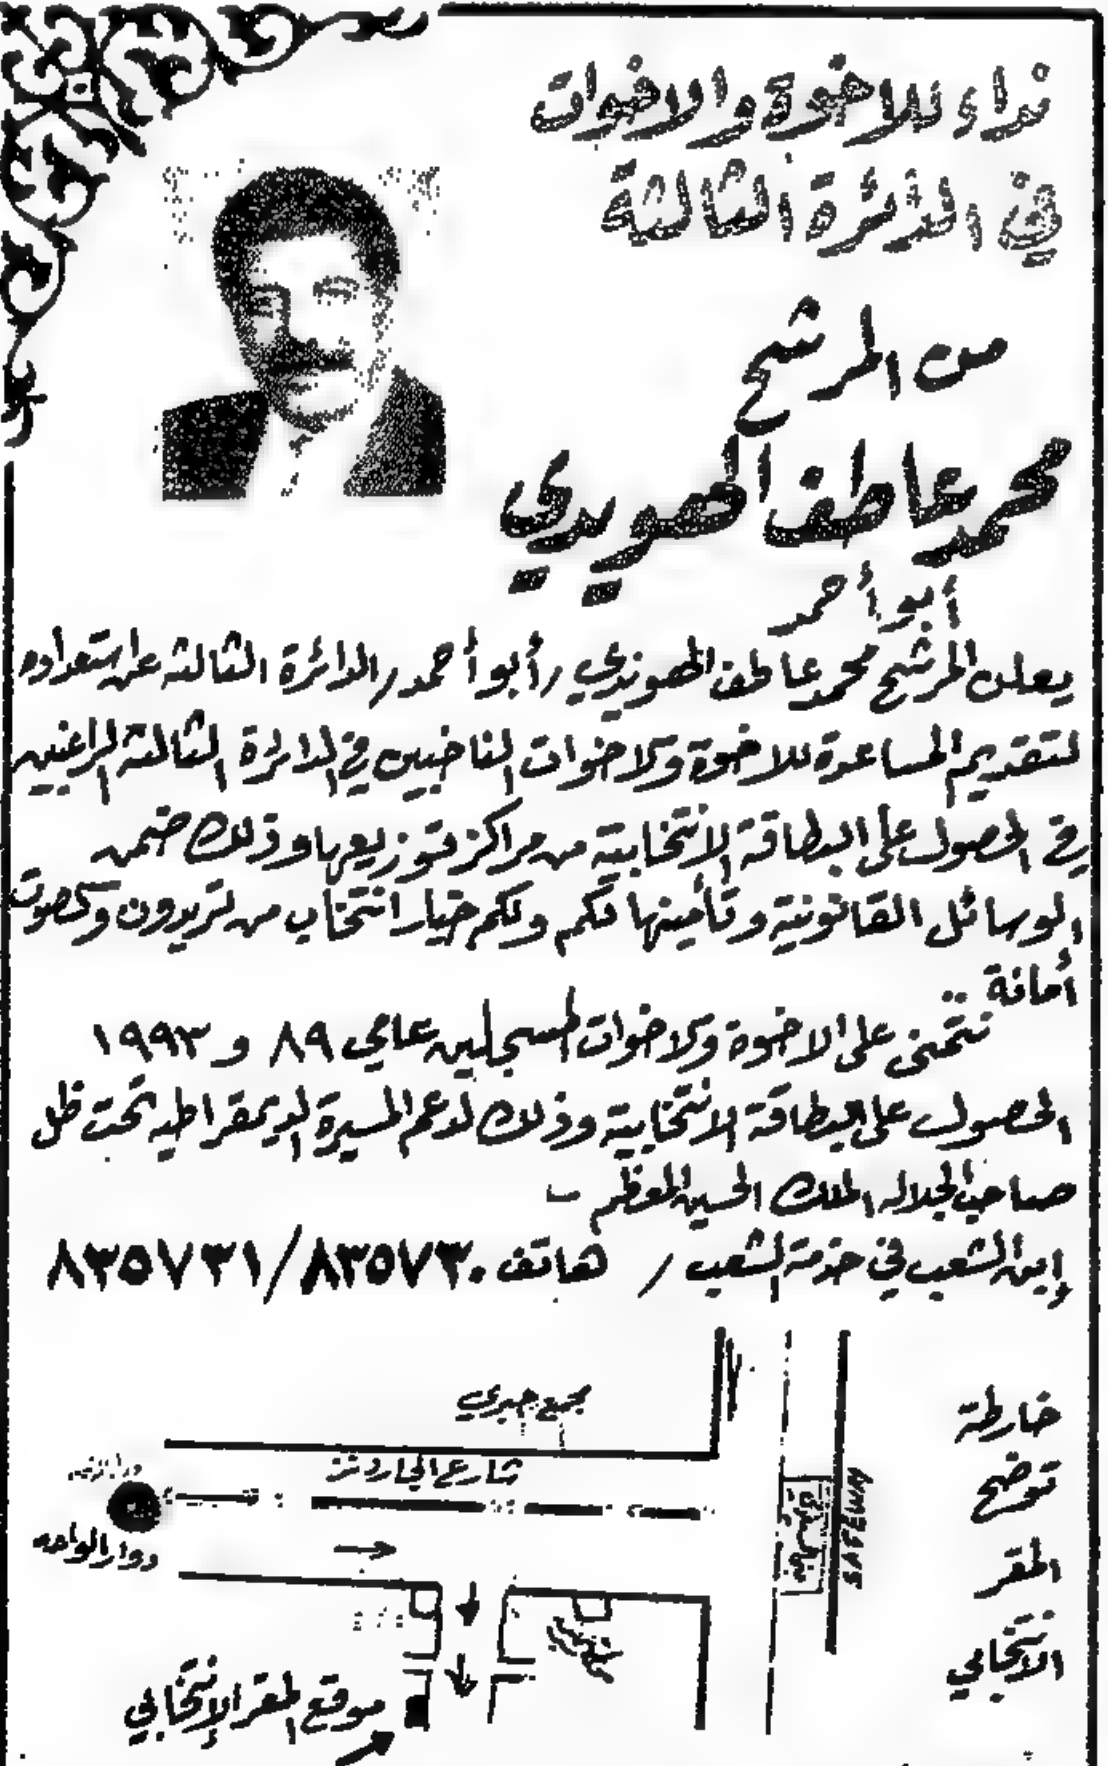 نداء للاخوة والاخوات
في الدائرة الثالثة
من المرشح
محمد عاطف الهويدي
أبو أحمد
يعلن المرشح محمد عاطف الهويدي / أبو أحمد / الدائرة الثالثة عن استعداده
لتقديم المساعدة للاخوة والاخوات الناخبين في الدائرة الثالثة الراغبين
في الحصول على البطاقة الانتخابية من مراكز توزيعها وذلك ضمن
الوسائل القانونية وتأمينها لكم ولكم خيار انتخاب من تريدون والصوت
أمانة ..
نتمنى على الاخوة والاخوات المسجلين عامي ٨٩ و ١٩٩٣
الحصول على البطاقة الانتخابية وذلك لدعم المسيرة الديمقراطيه تحت ظل
صاحب الجلاله الملك الحسين المعظم
إبن الشعب في خدمة الشعب / هاتف ٨٣٥٧٣٠/٨٣٥٧٣١
خارطة
توضح
المقر
الانتخابي
مجمع جبري
شارع الجاردنز
دوار الواحه
SAFEWAY
موقع المقر الإنتخابي